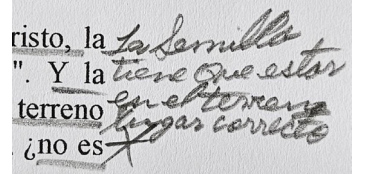 risto, la La Semilla
". Y la tiene que estar
terreno en el terreno
lugar correcto
. ¿no es